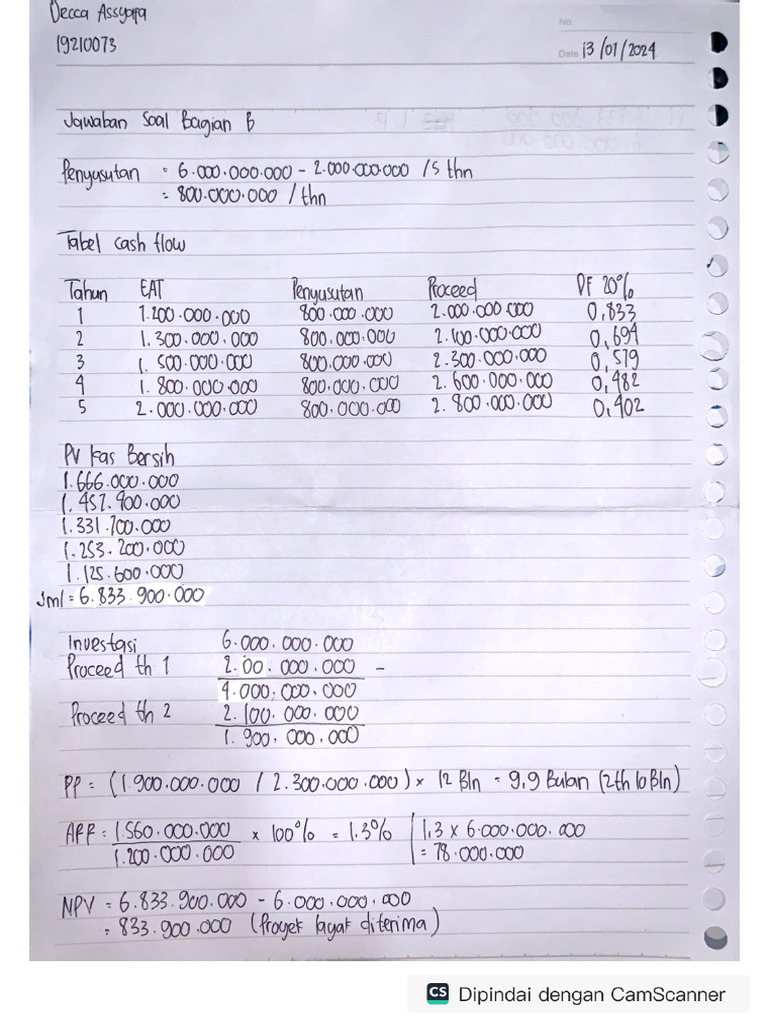 Decca Assyafa
19210073
No.
Date 13/01/2024
Jawaban Soal Bagian B
Penyusutan = 6.000.000.000 - 2.000.000.000 /5 thn
= 800.000.000 / thn
Tabel cash flow
Tahun EAT Penyusutan Proceed DF 20%
1 1.200.000.000 800.000.000 2.000.000.000 0,833
2 1.300.000.000 800.000.000 2.100.000.000 0,694
3 1.500.000.000 800.000.000 2.300.000.000 0,579
4 1.800.000.000 800.000.000 2.600.000.000 0,482
5 2.000.000.000 800.000.000 2.800.000.000 0,402
PV Kas Bersih
1.666.000.000
1.457.900.000
1.331.700.000
1.253.200.000
1.125.600.000
Jml = 6.833.900.000
Investasi 6.000.000.000
Proceed th 1 2.00.000.000 -
4.000.000.000
Proceed th 2 2.100.000.000
1.900.000.000
PP = (1.900.000.000 / 2.300.000.000) × 12 Bln = 9,9 Bulan (2th 10 Bln)
ARR = 1.560.000.000 × 100% = 1.3% 1,3 x 6.000.000.000
1.200.000.000 = 78.000.000
NPV = 6.833.900.000 - 6.000.000.000
= 833.900.000 (Proyek layak diterima)
CS Dipindai dengan CamScanner